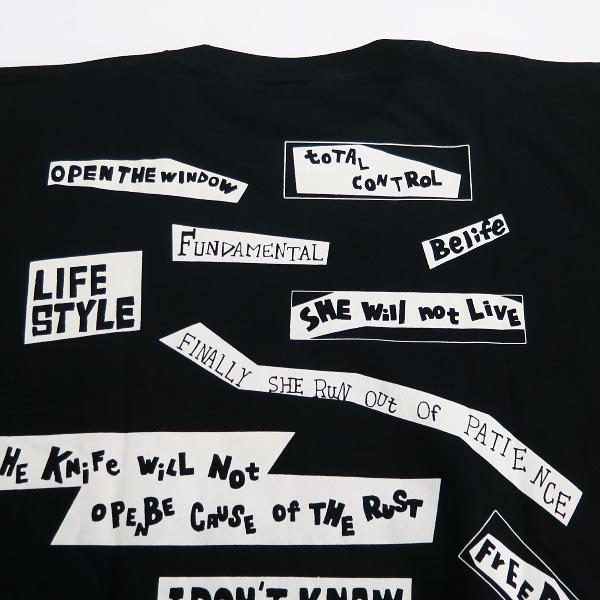 OPEN THE WINDOW
toTAL
CONTROL
FUNDAMENTAL
Belife
LIFE
STYLE
SHE Will not LivE
FINALLY SHE RUN Out OF PATIENCE
HE KNiFe WiLL Not
OPENBE CAUSE of THE RUST
I DON'T KNOW